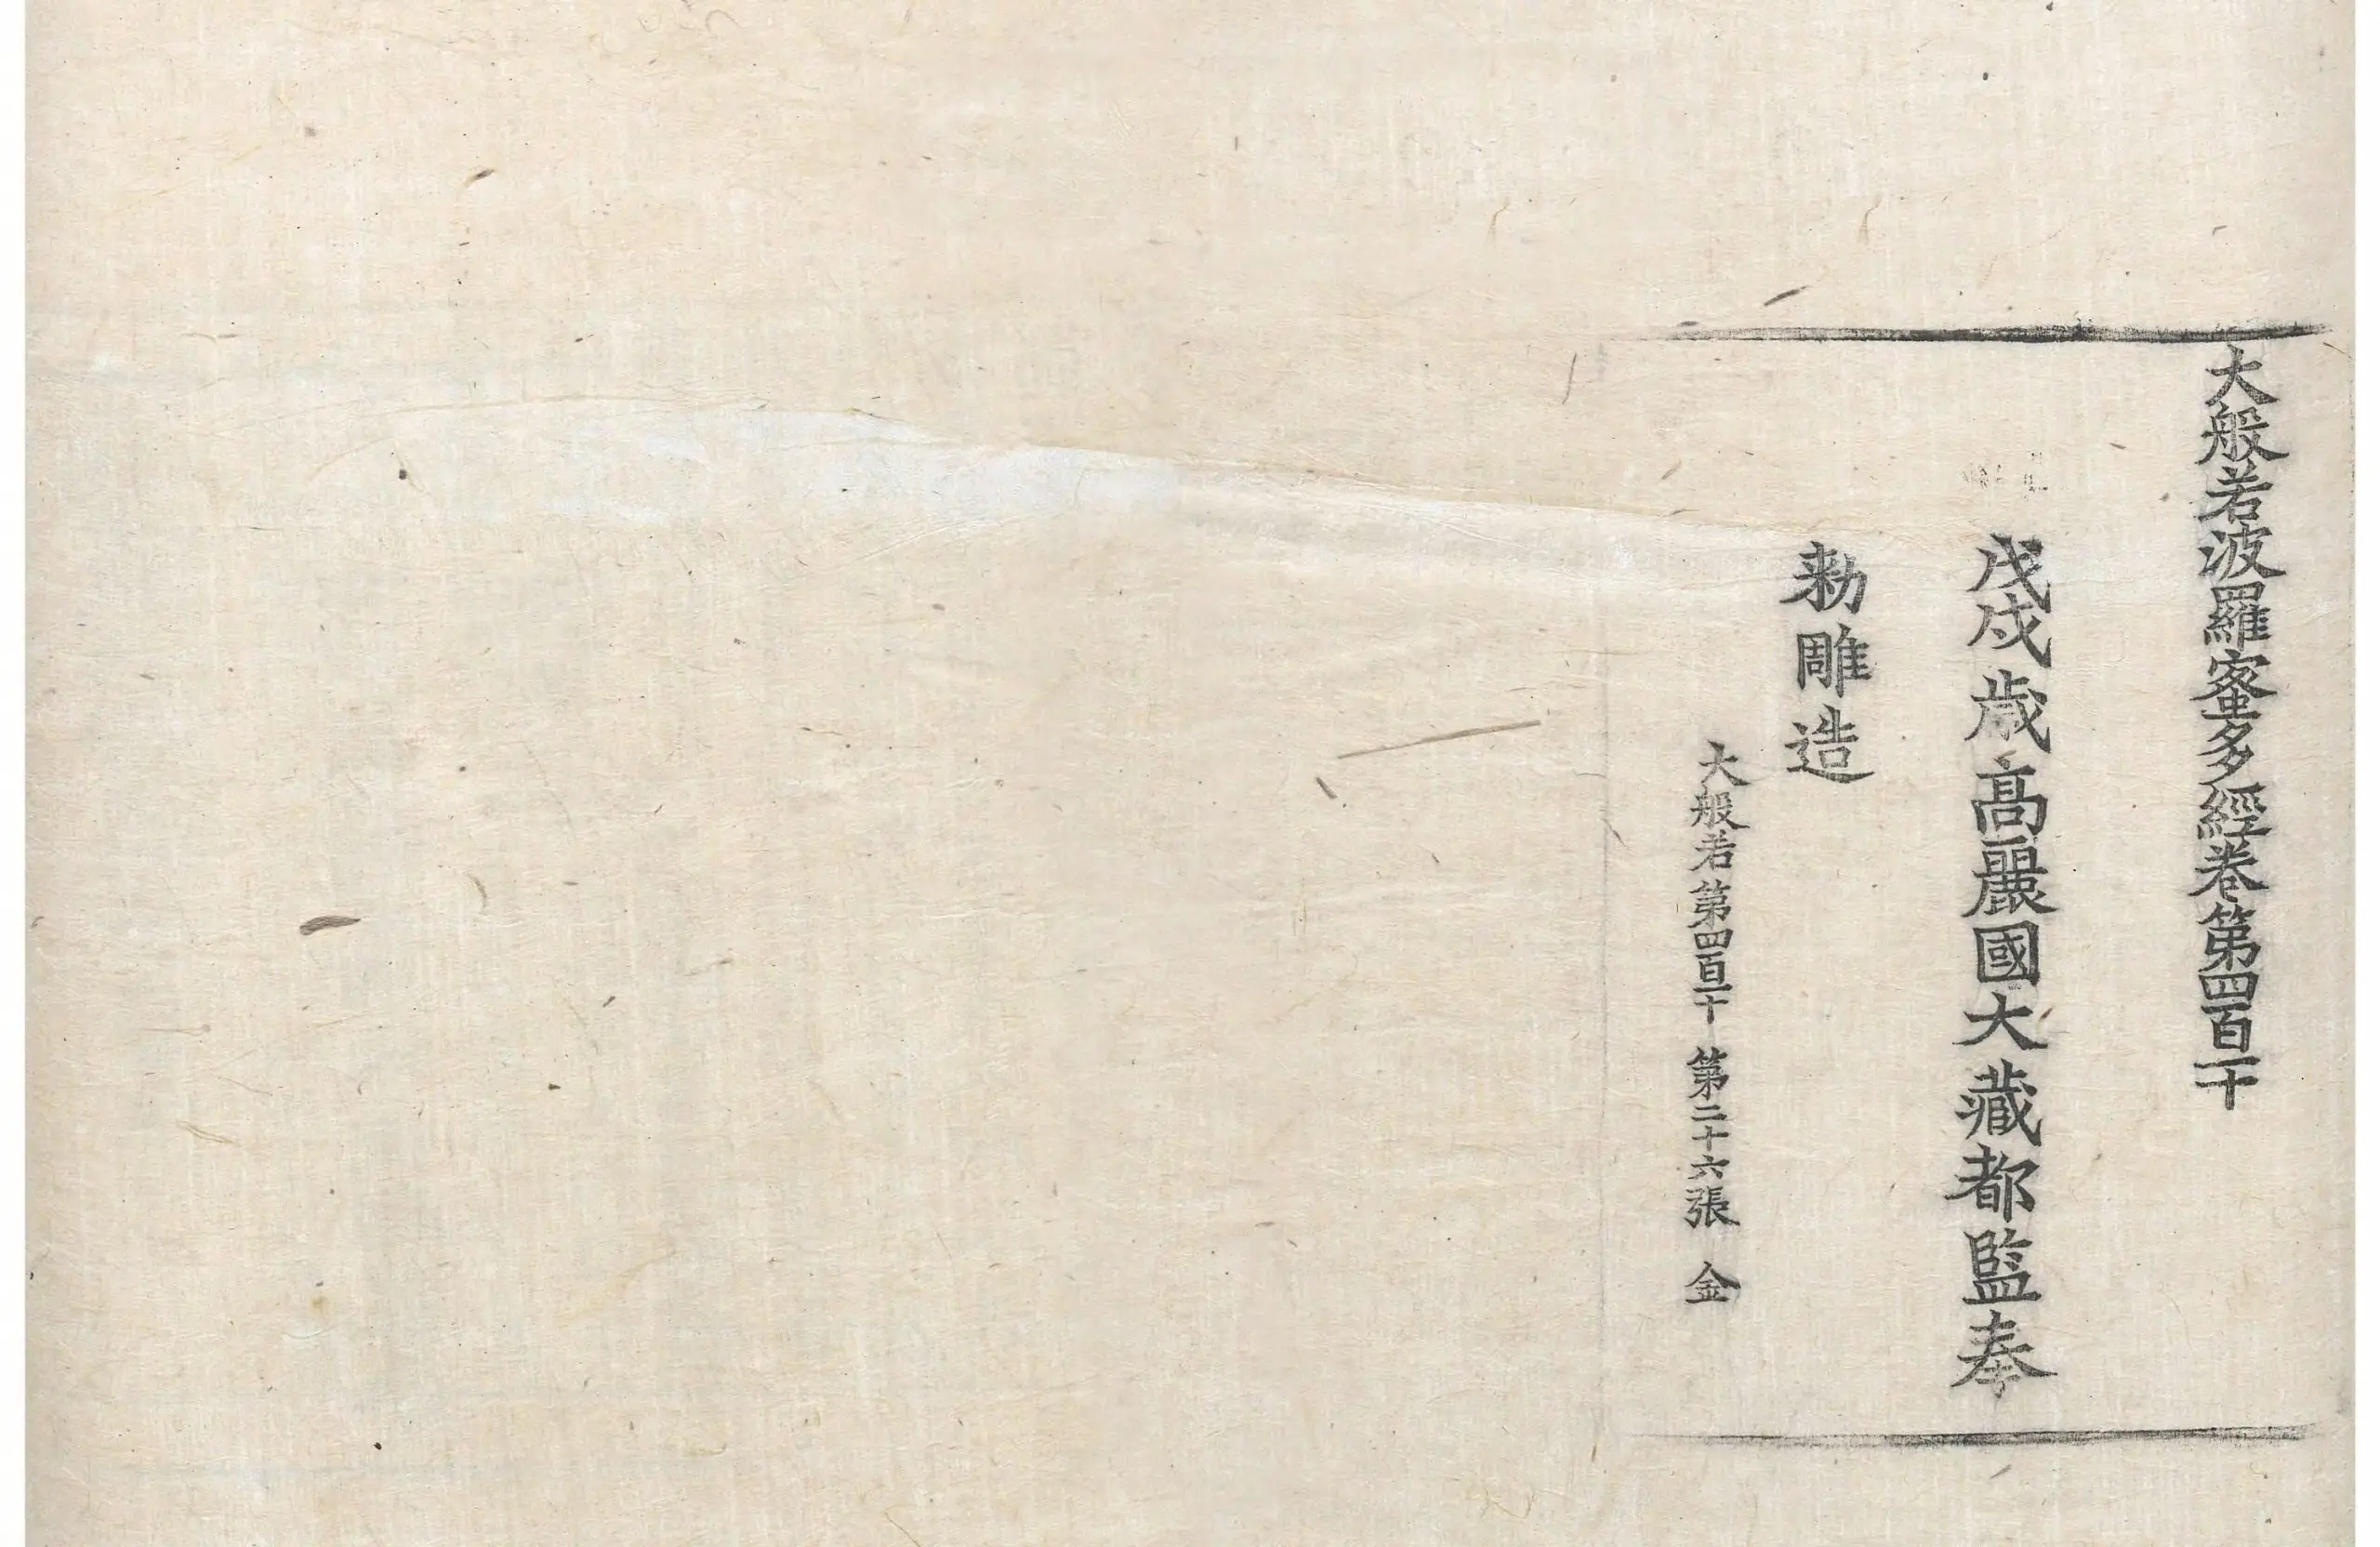 大般若波羅蜜多經卷第四百一十
戊戌歲高麗國大藏都監奉
勑雕造
大般若第四百一十 第二十六張 金